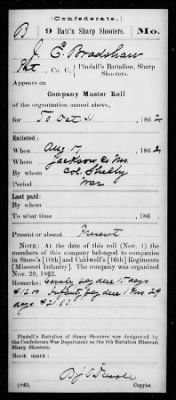 (Confederate.)
B 9 Batt'n Sharp Shooters. Mo.
J. E. Bradshaw
Pvt, Co. C, Pindall's Battalion, Sharp Shooters.
Appears on
Company Muster Roll
of the organization named above,
for To Oct 31, 1862.
Enlisted:
When Aug 17, 1862.
Where Jackson Co Mo.
By whom Col. Shelby
Period War
Last paid:
By whom
To what time , 186 .
Present or absent Present
NOTE.—At the date of this roll (Nov. 1) the
members of this company belonged to companies
in Steen's [10th] and Caldwell's [16th] Regiments
[Missouri Infantry]. The company was organized
Nov. 29, 1862.
Remarks:
Pindall's Battalion of Sharp Shooters was designated by
the Confederate War Department as the 9th Battalion Missouri
Sharp Shooters.
Book mark:
(642)
Copyist.